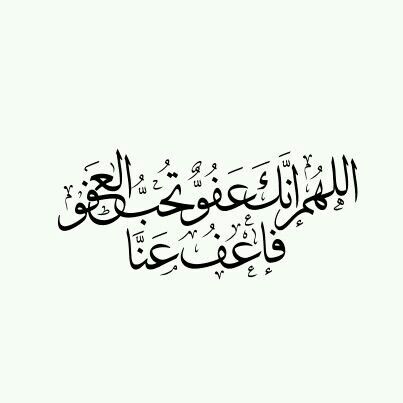 اللهم إنَّكَ عَفُوٌّ تُحِبُّ العَفْوَ
فَاعْفُ عَنَّا